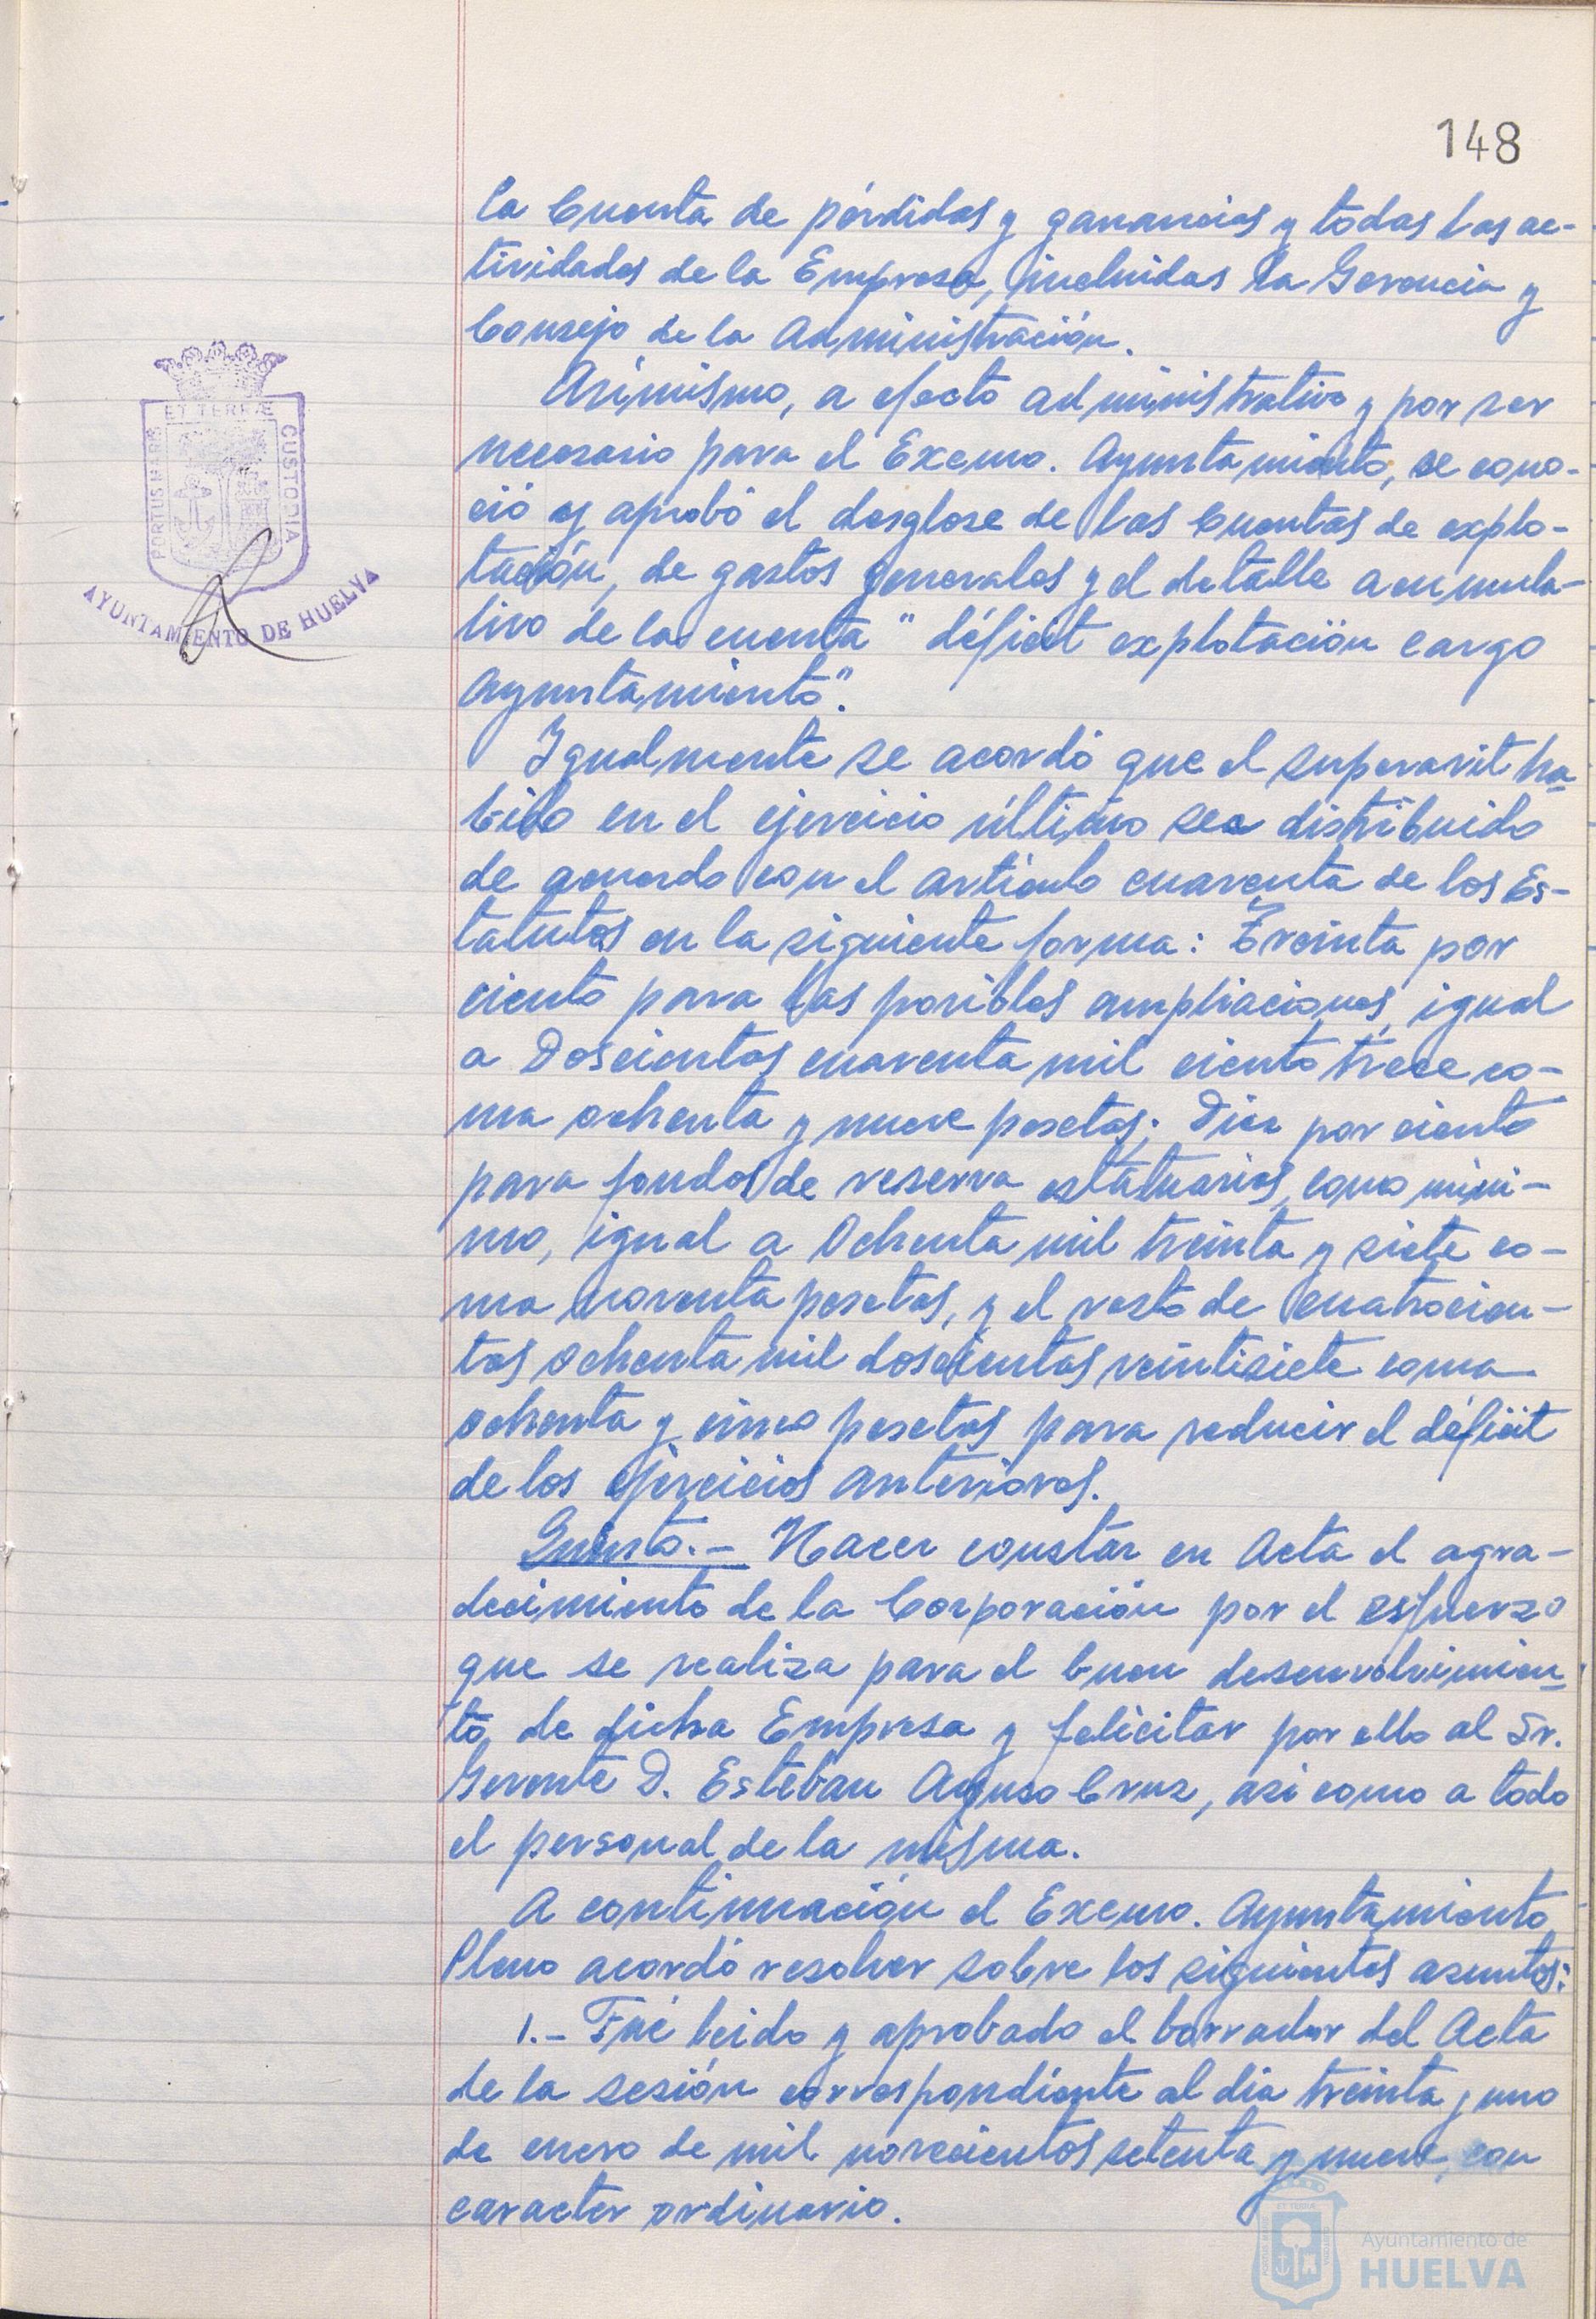 148
la Cuenta de pérdidas y ganancias y todas las ac-
tividades de la Empresa, incluidas la Gerencia y
Consejo de la Administración.
Asimismo, a efecto administrativo y por ser
necesario para el Excmo. Ayuntamiento, se cono-
ció y aprobó el desglose de las Cuentas de explo-
tación, de gastos generales y el detalle acumula-
tivo de la cuenta "déficit explotación cargo
Ayuntamiento".
Igualmente se acordó que el superavit ha-
bido en el ejercicio último sea distribuido
de acuerdo con el artículo cuarenta de los Es-
tatutos en la siguiente forma: Treinta por
ciento para las posibles ampliaciones, igual
a Doscientas cuarenta mil ciento trece co-
ma ochenta y nueve pesetas; Diez por ciento
para fondos de reserva estatuarios, como míni-
mo, igual a Ochenta mil treinta y siete co-
ma noventa pesetas, y el resto de Cuatrocien-
tas ochenta mil doscientas veintisiete coma
ochenta y cinco pesetas para reducir el déficit
de los ejercicios anteriores.
Quinto.- Hacer constar en Acta el agra-
decimiento de la Corporación por el esfuerzo
que se realiza para el buen desenvolvimien-
to de dicha Empresa y felicitar por ello al Sr.
Gerente D. Esteban Cruz, asi como a todo
el personal de la misma.
A continuación el Excmo. Ayuntamiento
Pleno acordó resolver sobre los siguientes asuntos:
1.- Fué leido y aprobado el borrador del Acta
de la sesión correspondiente al dia treinta y uno
de enero de mil novecientos setenta y nueve, con
caracter ordinario.
PORTUS MARIS
ET TERRÆ
CUSTODIA
AYUNTAMIENTO DE HUELVA
Ayuntamiento de
HUELVA